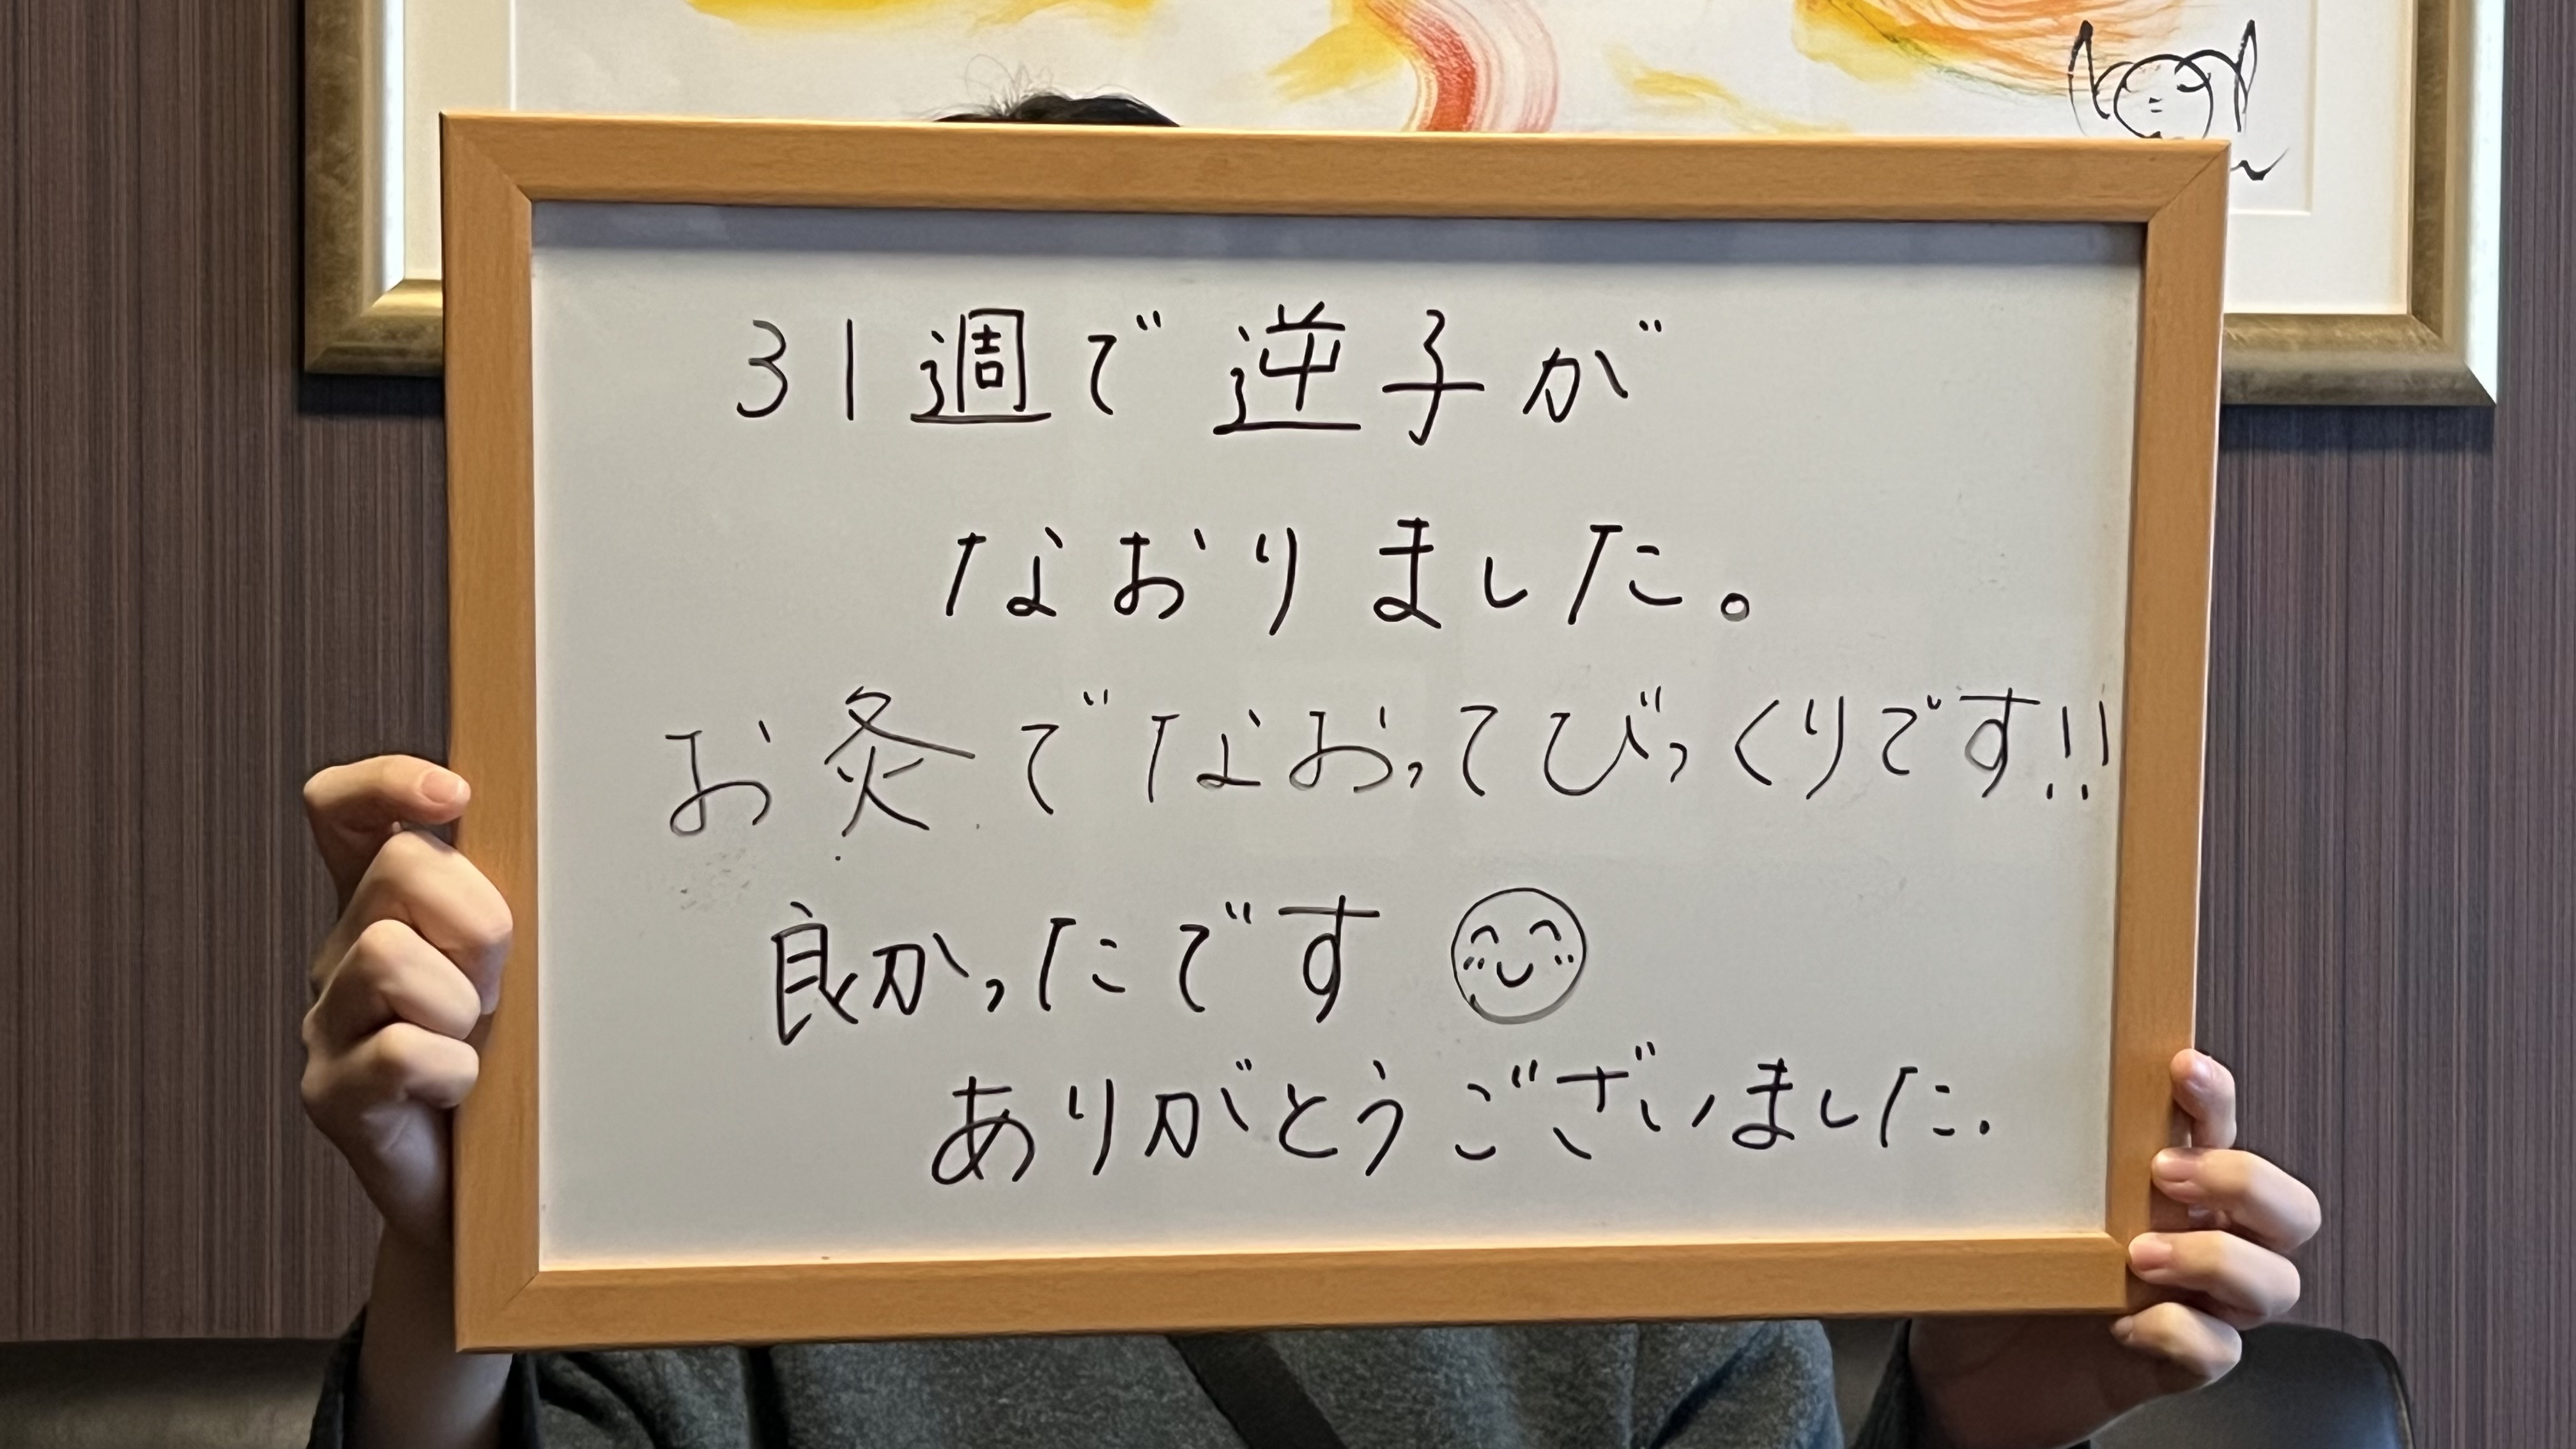 31週で逆子が
なおりました。
お灸でなおってびっくりです!!
良かったです
ありがとうございました.